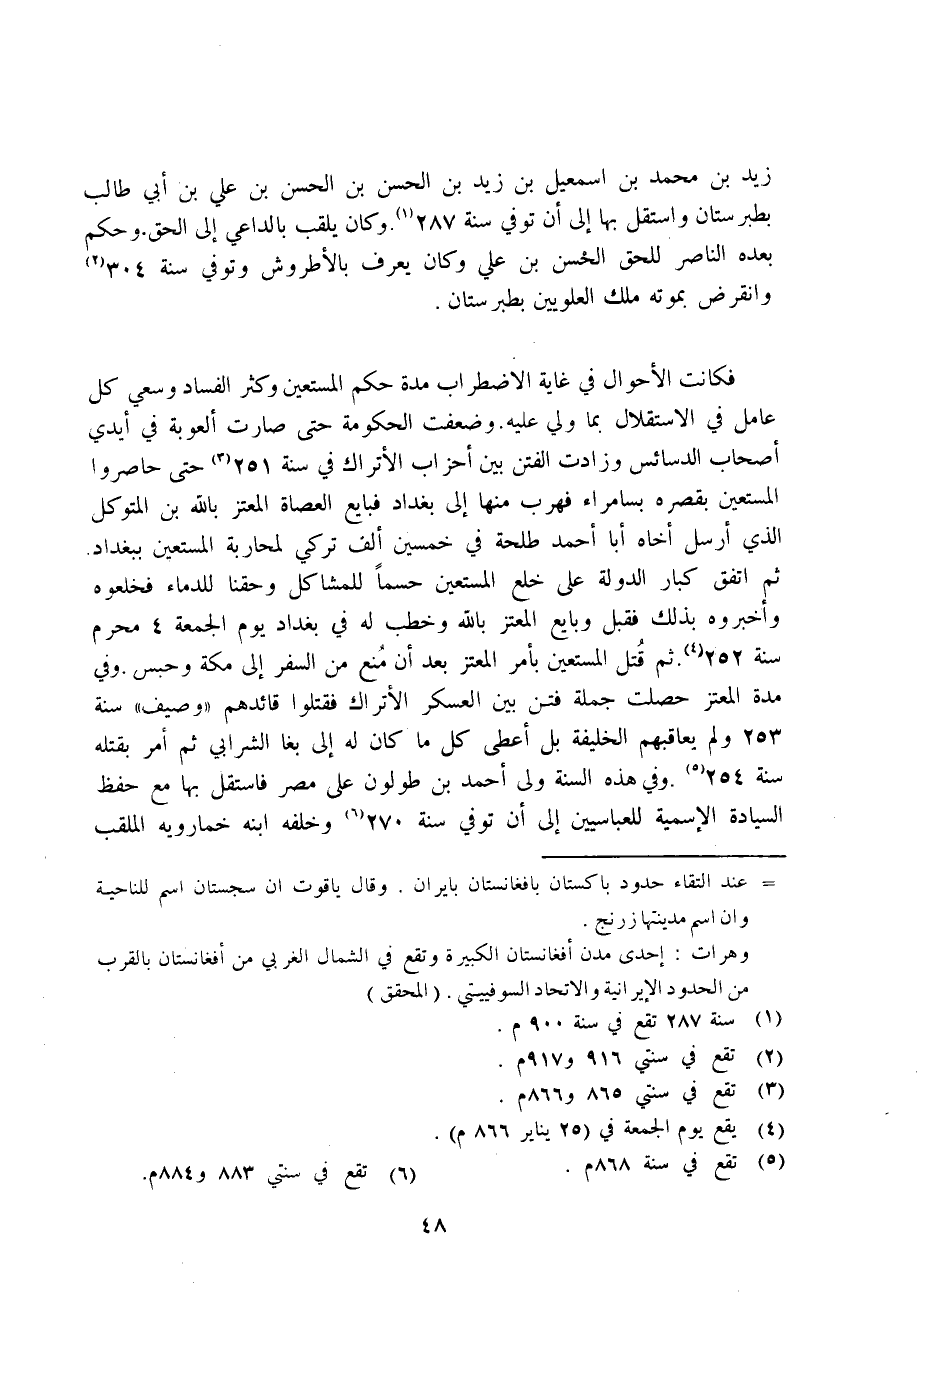 زيد بن محمد بن اسمعيل بن زيد بن الحسن بن الحسن بن علي بن أبي طالب
بطبرستان واستقل بها إلى أن توفي سنة ٢٨٧(١).وكان يلقب بالداعي إلى الحق.وحكم
بعده الناصر للحق الحُسن بن علي وكان يعرف بالأطروش وتوفي سنة ٣٠٤(٢)
وانقرض بموته ملك العلويين بطبرستان .
فكانت الأحوال في غاية الاضطراب مدة حكم المستعين وكثر الفساد وسعي كل
عامل في الاستقلال بما ولي عليه.وضعفت الحكومة حتى صارت ألعوبة في أيدي
أصحاب الدسائس وزادت الفتن بين أحزاب الأتراك في سنة ٢٥١(٣) حتى حاصروا
المستعين بقصره بسامراء فهرب منها إلى بغداد فبايع العصاة المعتز بالله بن المتوكل
الذي أرسل أخاه أبا أحمد طلحة في خمسين ألف تركي لمحاربة المستعين ببغداد.
ثم اتفق كبار الدولة على خلع المستعين حسماً للمشاكل وحقنا للدماء فخلعوه
وأخبروه بذلك فقبل وبايع المعتز بالله وخطب له في بغداد يوم الجمعة ٤ محرم
سنة ٢٥٢(٤).ثم قُتل المستعين بأمر المعتز بعد أن مُنع من السفر إلى مكة وحبس .وفي
مدة المعتز حصلت جملة فتن بين العسكر الأتراك فقتلوا قائدهم «وصيف» سنة
٢٥٣ ولم يعاقبهم الخليفة بل أعطى كل ما كان له إلى بغا الشرابي ثم أمر بقتله
سنة ٢٥٤(٥) .وفي هذه السنة ولى أحمد بن طولون على مصر فاستقل بها مع حفظ
السيادة الإسمية للعباسيين إلى أن توفي سنة ٢٧٠(٦) وخلفه ابنه خمارويه الملقب
= عند التقاء حدود باكستان بافغانستان بايران . وقال ياقوت ان سجستان اسم للناحية
وان اسم مدينتها زرنج .
وهرات : إحدى مدن أفغانستان الكبيرة وتقع في الشمال الغربي من أفغانستان بالقرب
من الحدود الإيرانية والاتحاد السوفييتي . ( المحقق )
(١) سنة ٢٨٧ تقع في سنة ٩٠٠ م .
(٢) تقع في سنتي ٩١٦ و٩١٧م .
(٣) تقع في سنتي ٨٦٥ و٨٦٦م .
(٤) يقع يوم الجمعة في (٢٥ يناير ٨٦٦ م) .
(٥) تقع في سنة ٨٦٨م . (٦) تقع في سنتي ٨٨٣ و٨٨٤م.
٤٨